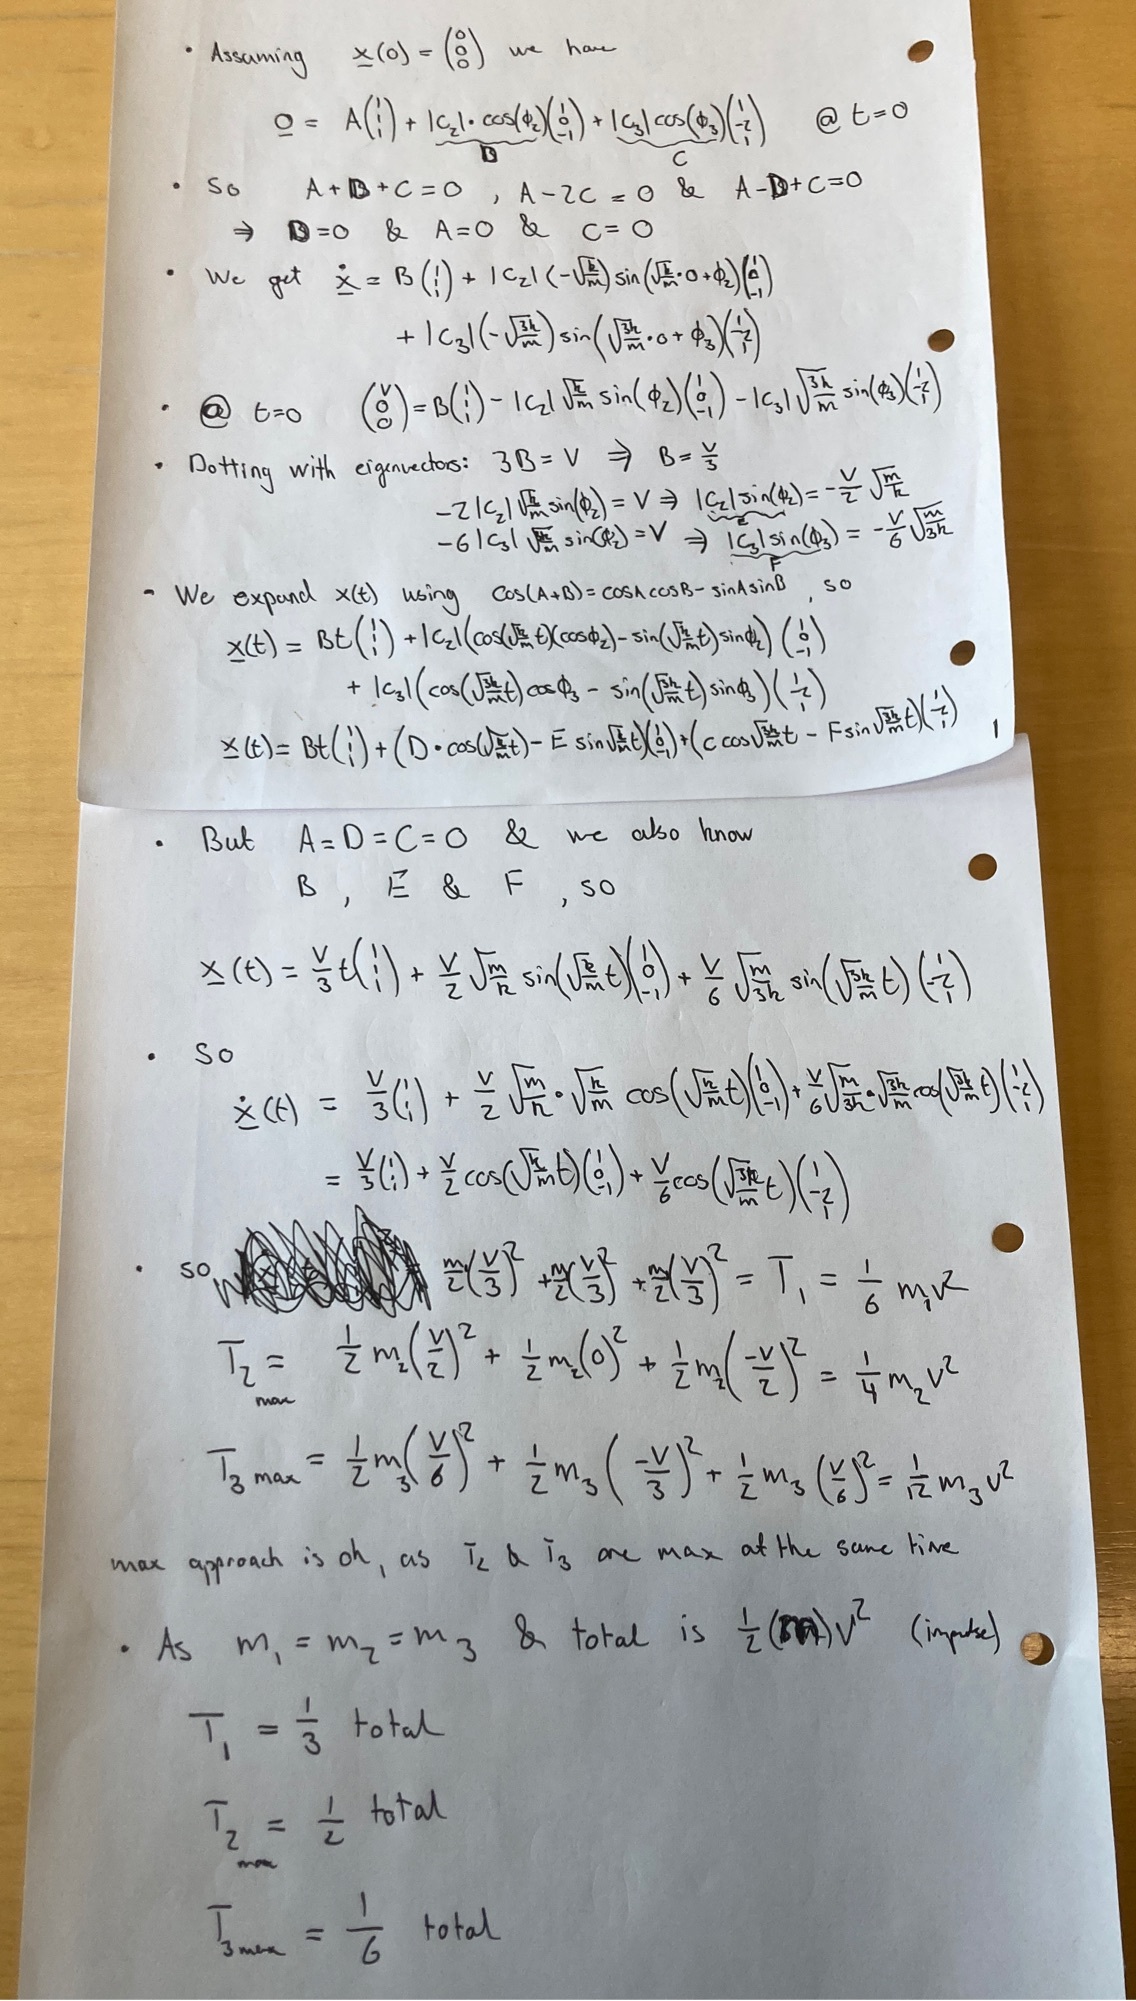 • Assuming x(0) = (0 0 0) we have
0 = A(1 1 1) + |C₂|·cos(ϕ₂)(1 0 -1) + |C₃|cos(ϕ₃)(1 -2 1) @ t=0
D C
• So A+D+C=0 , A-2C=0 & A-D+C=0
⇒ D=0 & A=0 & C=0
• We get ẋ = B(1 1 1) + |C₂|(-√(k/m)) sin(√(k/m)·0+ϕ₂)(1 0 -1)
+ |C₃|(-√(3k/m)) sin(√(3k/m)·0+ϕ₃)(1 -2 1)
• @ t=0 (V 0 0) = B(1 1 1) - |C₂|√(k/m) sin(ϕ₂)(1 0 -1) - |C₃|√(3k/m) sin(ϕ₃)(1 -2 1)
• Dotting with eigenvectors: 3B = V ⇒ B = V/3
-2|C₂|√(k/m) sin(ϕ₂) = V ⇒ |C₂|sin(ϕ₂) = -V/2 √(m/k)
E
-6|C₃|√(3k/m) sin(ϕ₂) = V ⇒ |C₃|sin(ϕ₃) = -V/6 √(m/3k)
F
- We expand x(t) using cos(A+B)=cosAcosB-sinAsinB, so
x(t) = Bt(1 1 1) + |C₂|(cos(√(k/m)t)(cosϕ₂)-sin(√(k/m)t)sinϕ₂)(1 0 -1)
+ |C₃|(cos(√(3k/m)t)cosϕ₃ - sin(√(3k/m)t)sinϕ₃)(1 -2 1)
x(t) = Bt(1 1 1) + (D·cos(√(k/m)t) - E sin√(k/m)t)(1 0 -1) + (C cos√(3k/m)t - F sin√(3k/m)t)(1 -2 1)
1
• But A=D=C=0 & we also know
B , E & F , so
x(t) = V/3 t(1 1 1) + V/2 √(m/k) sin(√(k/m)t)(1 0 -1) + V/6 √(m/3k) sin(√(3k/m)t)(1 -2 1)
• So
ẋ(t) = V/3(1 1 1) + V/2 √(m/k)·√(k/m) cos(√(k/m)t)(1 0 -1) + V/6 √(m/3k)·√(3k/m) cos(√(3k/m)t)(1 -2 1)
= V/3(1 1 1) + V/2 cos(√(k/m)t)(1 0 -1) + V/6 cos(√(3k/m)t)(1 -2 1)
• so m/2(V/3)² + m/2(V/3)² + m/2(V/3)² = T₁ = 1/6 m₁V²
T₂ max = 1/2 m₂(V/2)² + 1/2 m₂(0)² + 1/2 m₂(-V/2)² = 1/4 m₂V²
T₃ max = 1/2 m₃(V/6)² + 1/2 m₃(-V/3)² + 1/2 m₃(V/6)² = 1/12 m₃V²
max approach is ok, as T₂ & T₃ are max at the same time
• As m₁ = m₂ = m₃ & total is 1/2(m)V² (impulse)
T₁ = 1/3 total
T₂ max = 1/2 total
T₃ max = 1/6 total